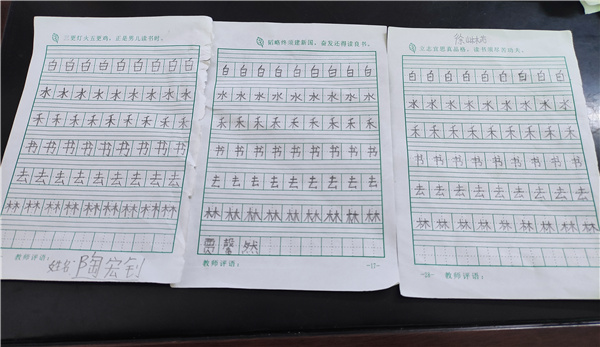 三更灯火五更鸡，正是男儿读书时。
白白白白白白白白白
水水水水水水水水水
禾禾禾禾禾禾禾禾禾
书书书书书书书书书
去去去去去去去去去
林林林林林林林林林
教师评语：
姓名:陶宏钊
韬略终须建新国，奋发还得读良书。
白白白白白白白白白
水水水水水水水水水
禾禾禾禾禾禾禾禾禾
书书书书书书书书书
去去去去去去去去去
林林林林林林林林林
馨然
教师评语：
-17-
立志宜思真品格，读书须尽苦功夫。
白白白白白白白白白
水水水水水水水水水
禾禾禾禾禾禾禾禾禾
书书书书书书书书书
去去去去去去去去去
林林林林林林林林林
教师评语：